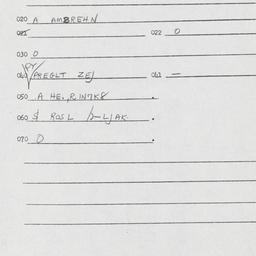 020 A AMBREHN
021 022 0
030 0
040 PREGLT ZEJ 041 —
050 A HE, RINTK8 .
060 $ ROSL LJAK .
070 0